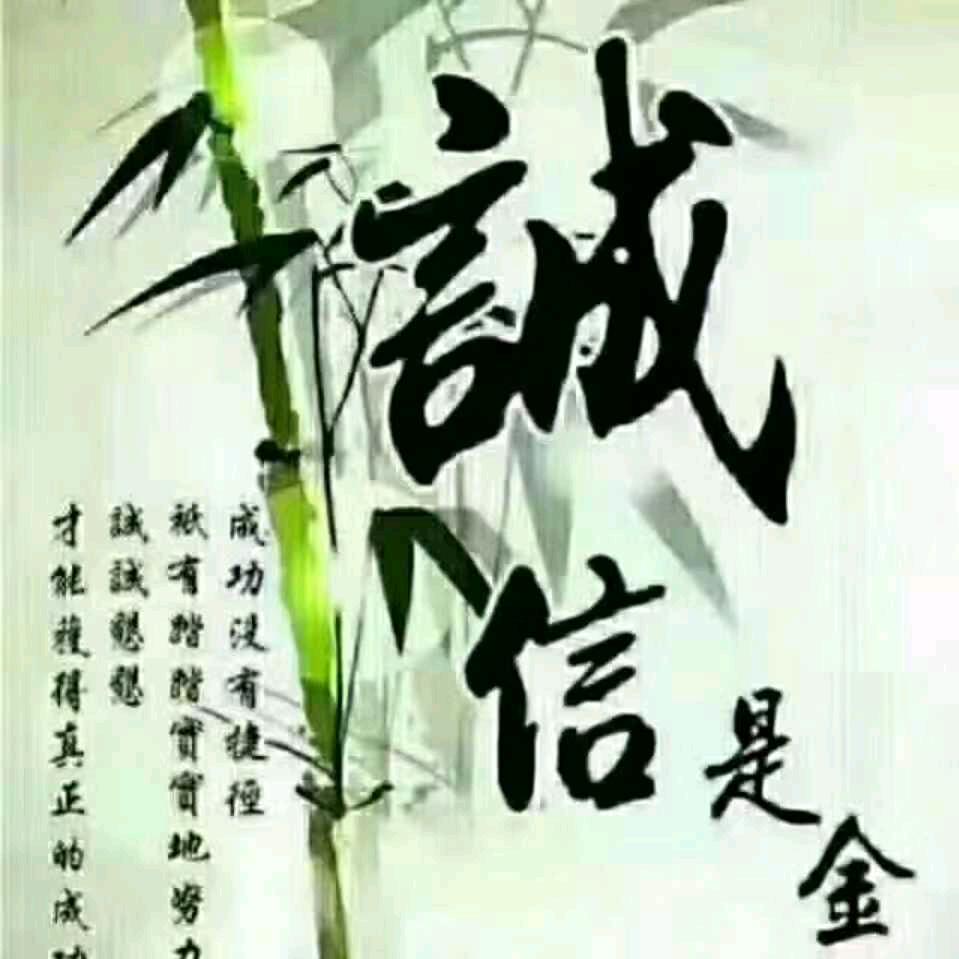 誠信是金
成功沒有捷徑
祇有踏踏實實地努力
誠誠懇懇
才能獲得真正的成功